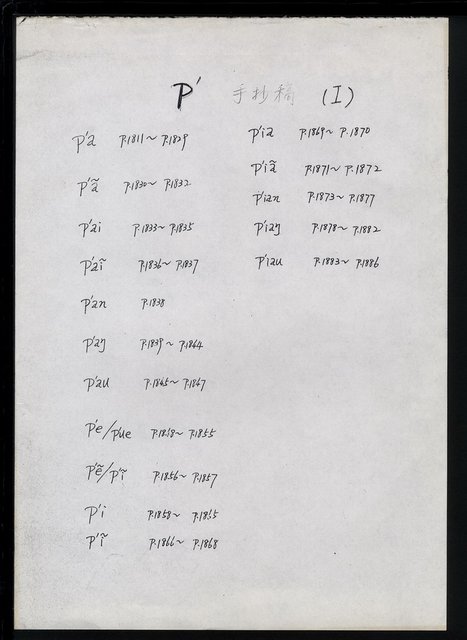 P' 手抄稿 (I)
p'a P.1811~ P.1829
p'ã P.1830~ P.1832
p'ai P.1833~ P.1835
p'aĩ P.1836~ P.1837
p'an P.1838
p'aŋ P.1839~ P.1844
p'au P.1845~ P.1847
p'e/p'ue P.1848~ P.1855
p'ẽ/p'ĩ P.1856~ P.1857
p'i P.1858~ P.1865
p'ĩ P.1866~ P.1868
p'ia P.1869~ P.1870
p'iã P.1871~ P.1872
p'ian P.1873~ P.1877
p'iaŋ P.1878~ P.1882
p'iau P.1883~ P.1886